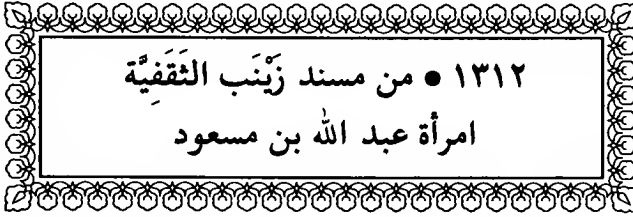 ١٣١٢ • من مسند زَيْنَب الثَقَفِيَّة
امرأة عبد الله بن مسعود